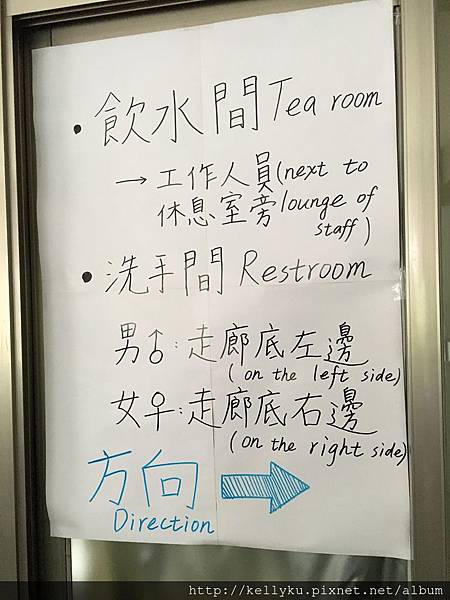 • 飲水間 Tea room
→ 工作人員 (next to
休息室旁 lounge of
staff)
• 洗手間 Restroom
男♂：走廊底左邊
(on the left side)
女♀：走廊底右邊
(on the right side)
方向
Direction
http://kellyku.pixnet.net/album